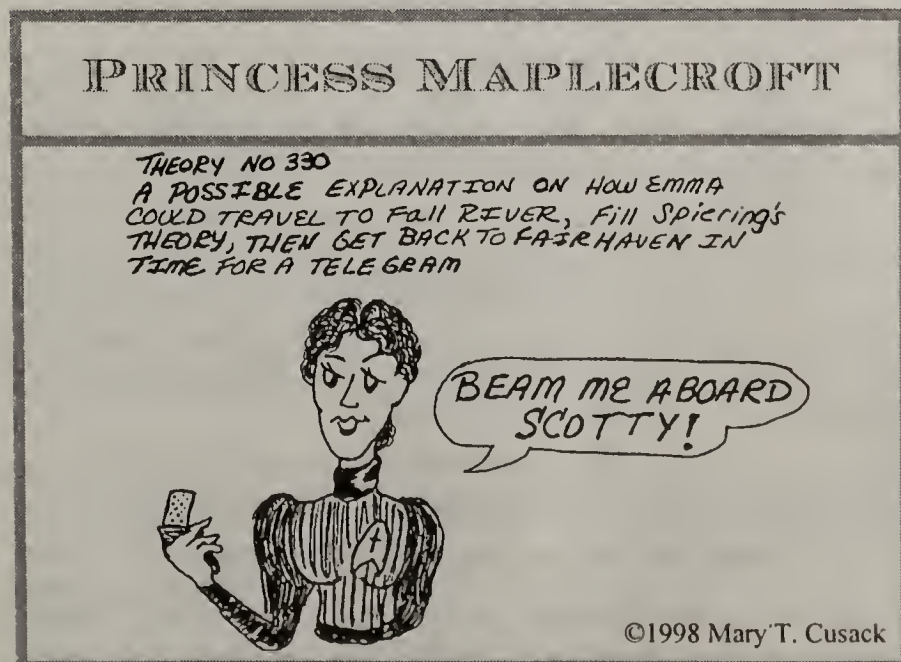 PRINCESS MAPLECROFT
THEORY NO 330
A POSSIBLE EXPLANATION ON HOW EMMA
COULD TRAVEL TO Fall RIVER, Fill Spiering's
THEORY, THEN GET BACK TO FAIRHAVEN IN
TIME FOR A TELEGRAM
BEAM ME ABOARD
SCOTTY!
©1998 Mary T. Cusack